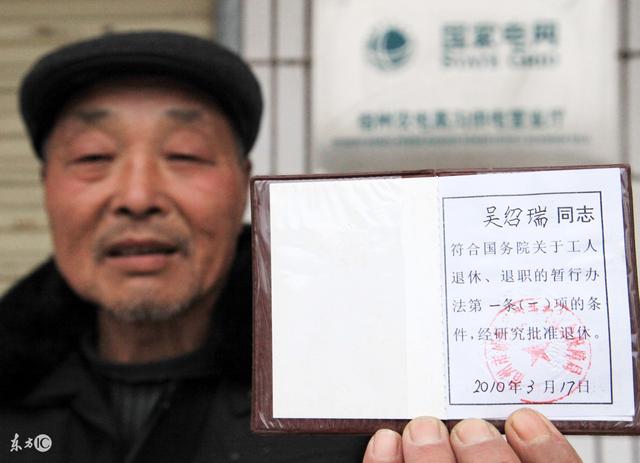 国家电网
吴绍瑞同志
符合国务院关于工人
退休、退职的暂行办
法第一条(三)项的条
件,经研究批准退休。
2010年3月17日
东方IC